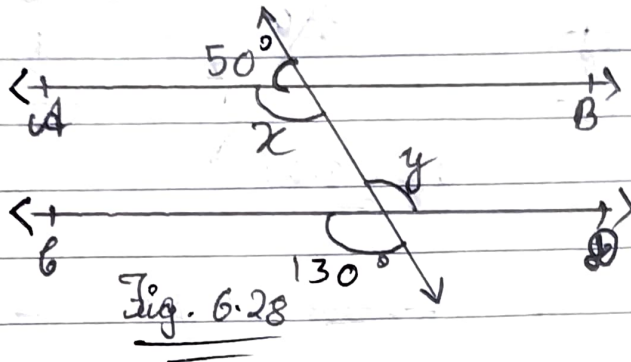 50°
A B
x
y
C D
130°
Fig. 6.28